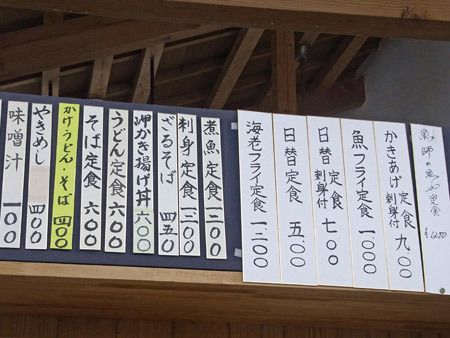 定食
かきあげ定食 刺身付 九.〇〇
魚フライ定食 一〇〇〇
日替定食 刺身付 七〇〇
日替定食 五.〇〇
海老フライ定食 一二〇〇
煮魚定食 一二〇〇
刺身定食
ざるそば 四五〇
岬かき揚げ丼 六〇〇
うどん定食 六〇〇
そば定食 六〇〇
かけうどん・そば 四〇〇
やきめし 四〇〇
味噌汁 一〇〇